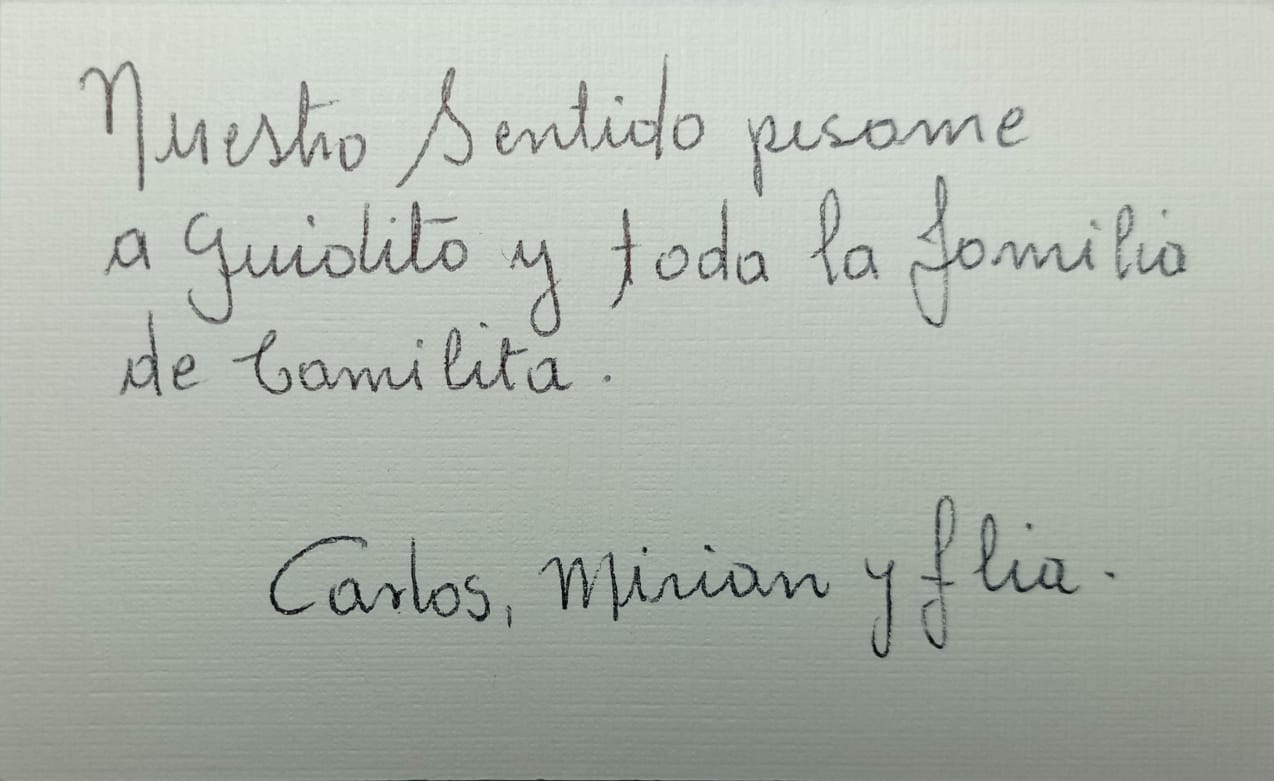 Nuestro Sentido pesame
a Guidito y toda la familia
de Camilita.
Carlos, Mirian y flia.